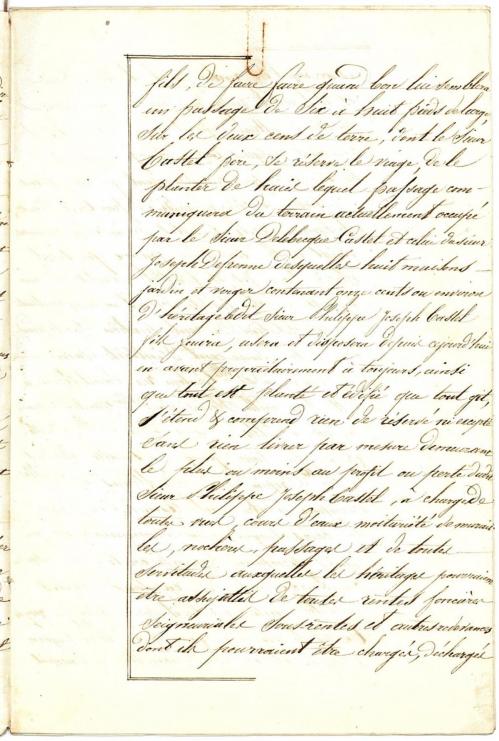 fils, de faire faire quand bon lui semblera
un passage de six à huit pieds de large
sur les deux cens de terre, dont le Sieur
Castel père, se réserve le de le
planter de haies lequel passage com-
muniquera du terrain actuellement occupé
par le Sieur Delbecque Castel et celui du sieur
Joseph Defrenne desquelles huit maisons
jardin et verger contenant onze cents ou environ
d'héritage ledit Sieur Philippe Joseph Castel
fils jouira, usera et disposera depuis aujourd'hui
en avant propriétairement à toujours, ainsi
que tout est planté et édifié que tout git,
s'étend & comprend rien de réservé ni excepté
sans rien livrer par mesure demeurant
le plus ou moins au profit ou perte dudit
Sieur Philippe Joseph Castel, à charge de
toutes rues, cours d'eaux moituriété de murail-
les, nochères, passages et de toutes
servitudes auxquelles les héritages pourraient
être assujettis de toutes rentes foncières
seigneuriales sousrentes et autres redevances
dont ils pourraient être chargés, déchargés